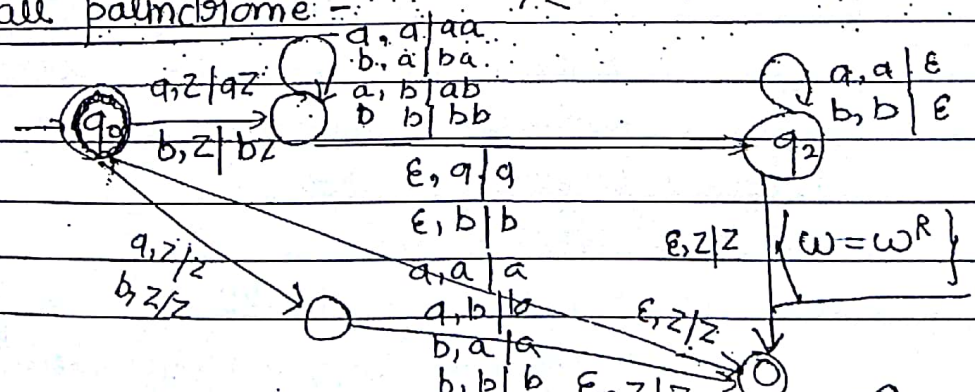 all palindrome :-
a, a | aa
b, a | ba
a, b | ab
b b | bb
a, Z | aZ
b, Z | bZ
q0
a, a | ε
b, b | ε
q2
ε, a | a
ε, b | b
a, a | a
a, b | b
b, a | a
b, b | b
ε, Z | Z
{ω = ω^R}
a, Z/Z
b, Z/Z
ε, Z/Z
ε, Z/Z